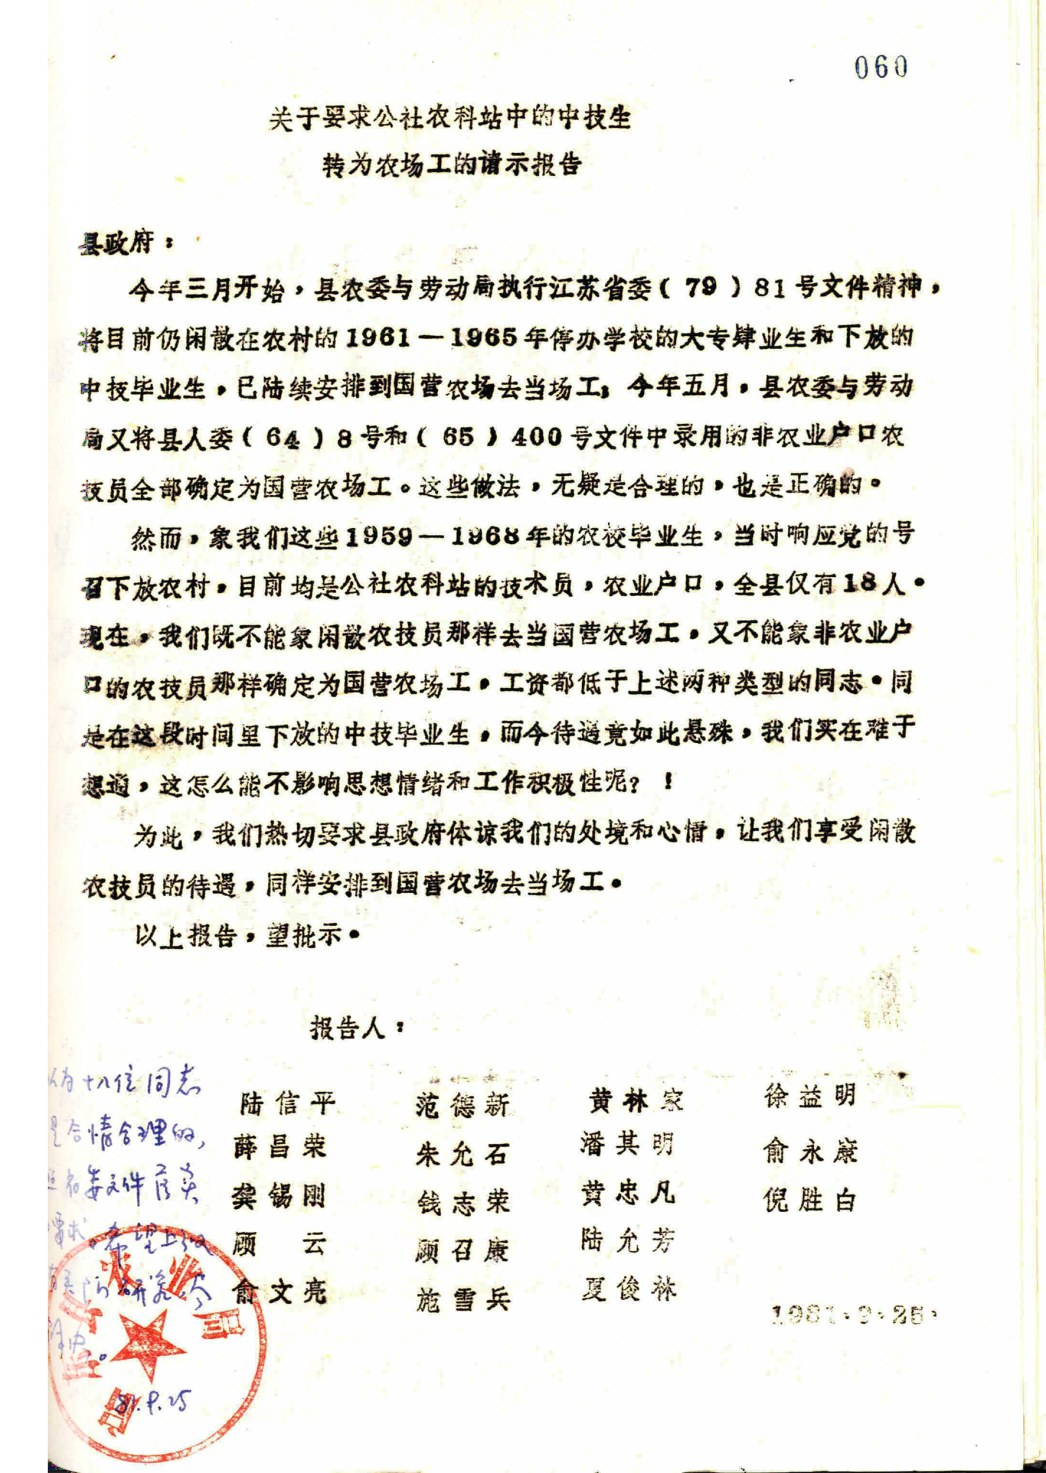 060
关于要求公社农科站中的中技生
转为农场工的请示报告
县政府：
今年三月开始，县农委与劳动局执行江苏省委（79）81号文件精神，
将目前仍闲散在农村的1961—1965年停办学校的大专肄业生和下放的
中技毕业生，已陆续安排到国营农场去当场工；今年五月，县农委与劳动
局又将县人委（64）8号和（65）400号文件中录用的非农业户口农
技员全部确定为国营农场工。这些做法，无疑是合理的，也是正确的。
然而，象我们这些1959—1968年的农校毕业生，当时响应党的号
召下放农村，目前均是公社农科站的技术员，农业户口，全县仅有18人。
现在，我们既不能象闲散农技员那样去当国营农场工，又不能象非农业户
口的农技员那样确定为国营农场工，工资都低于上述两种类型的同志。同
是在这段时间里下放的中技毕业生，而今待遇竟如此悬殊，我们实在难于
想通，这怎么能不影响思想情绪和工作积极性呢？！
为此，我们热切要求县政府体谅我们的处境和心情，让我们享受闲散
农技员的待遇，同样安排到国营农场去当场工。
以上报告，望批示。
报告人：
陆信平 范德新 黄林家 徐益明
薛昌荣 朱允石 潘其明 俞永康
龚锡刚 钱志荣 黄忠凡 倪胜白
顾云 顾召康 陆允芳
俞文亮 施雪兵 夏俊林
1981.9.25.
为十八位同志
是合情合理的，
省委文件落实
要求。希望上级
有关部门研究
81.9.25
农业局